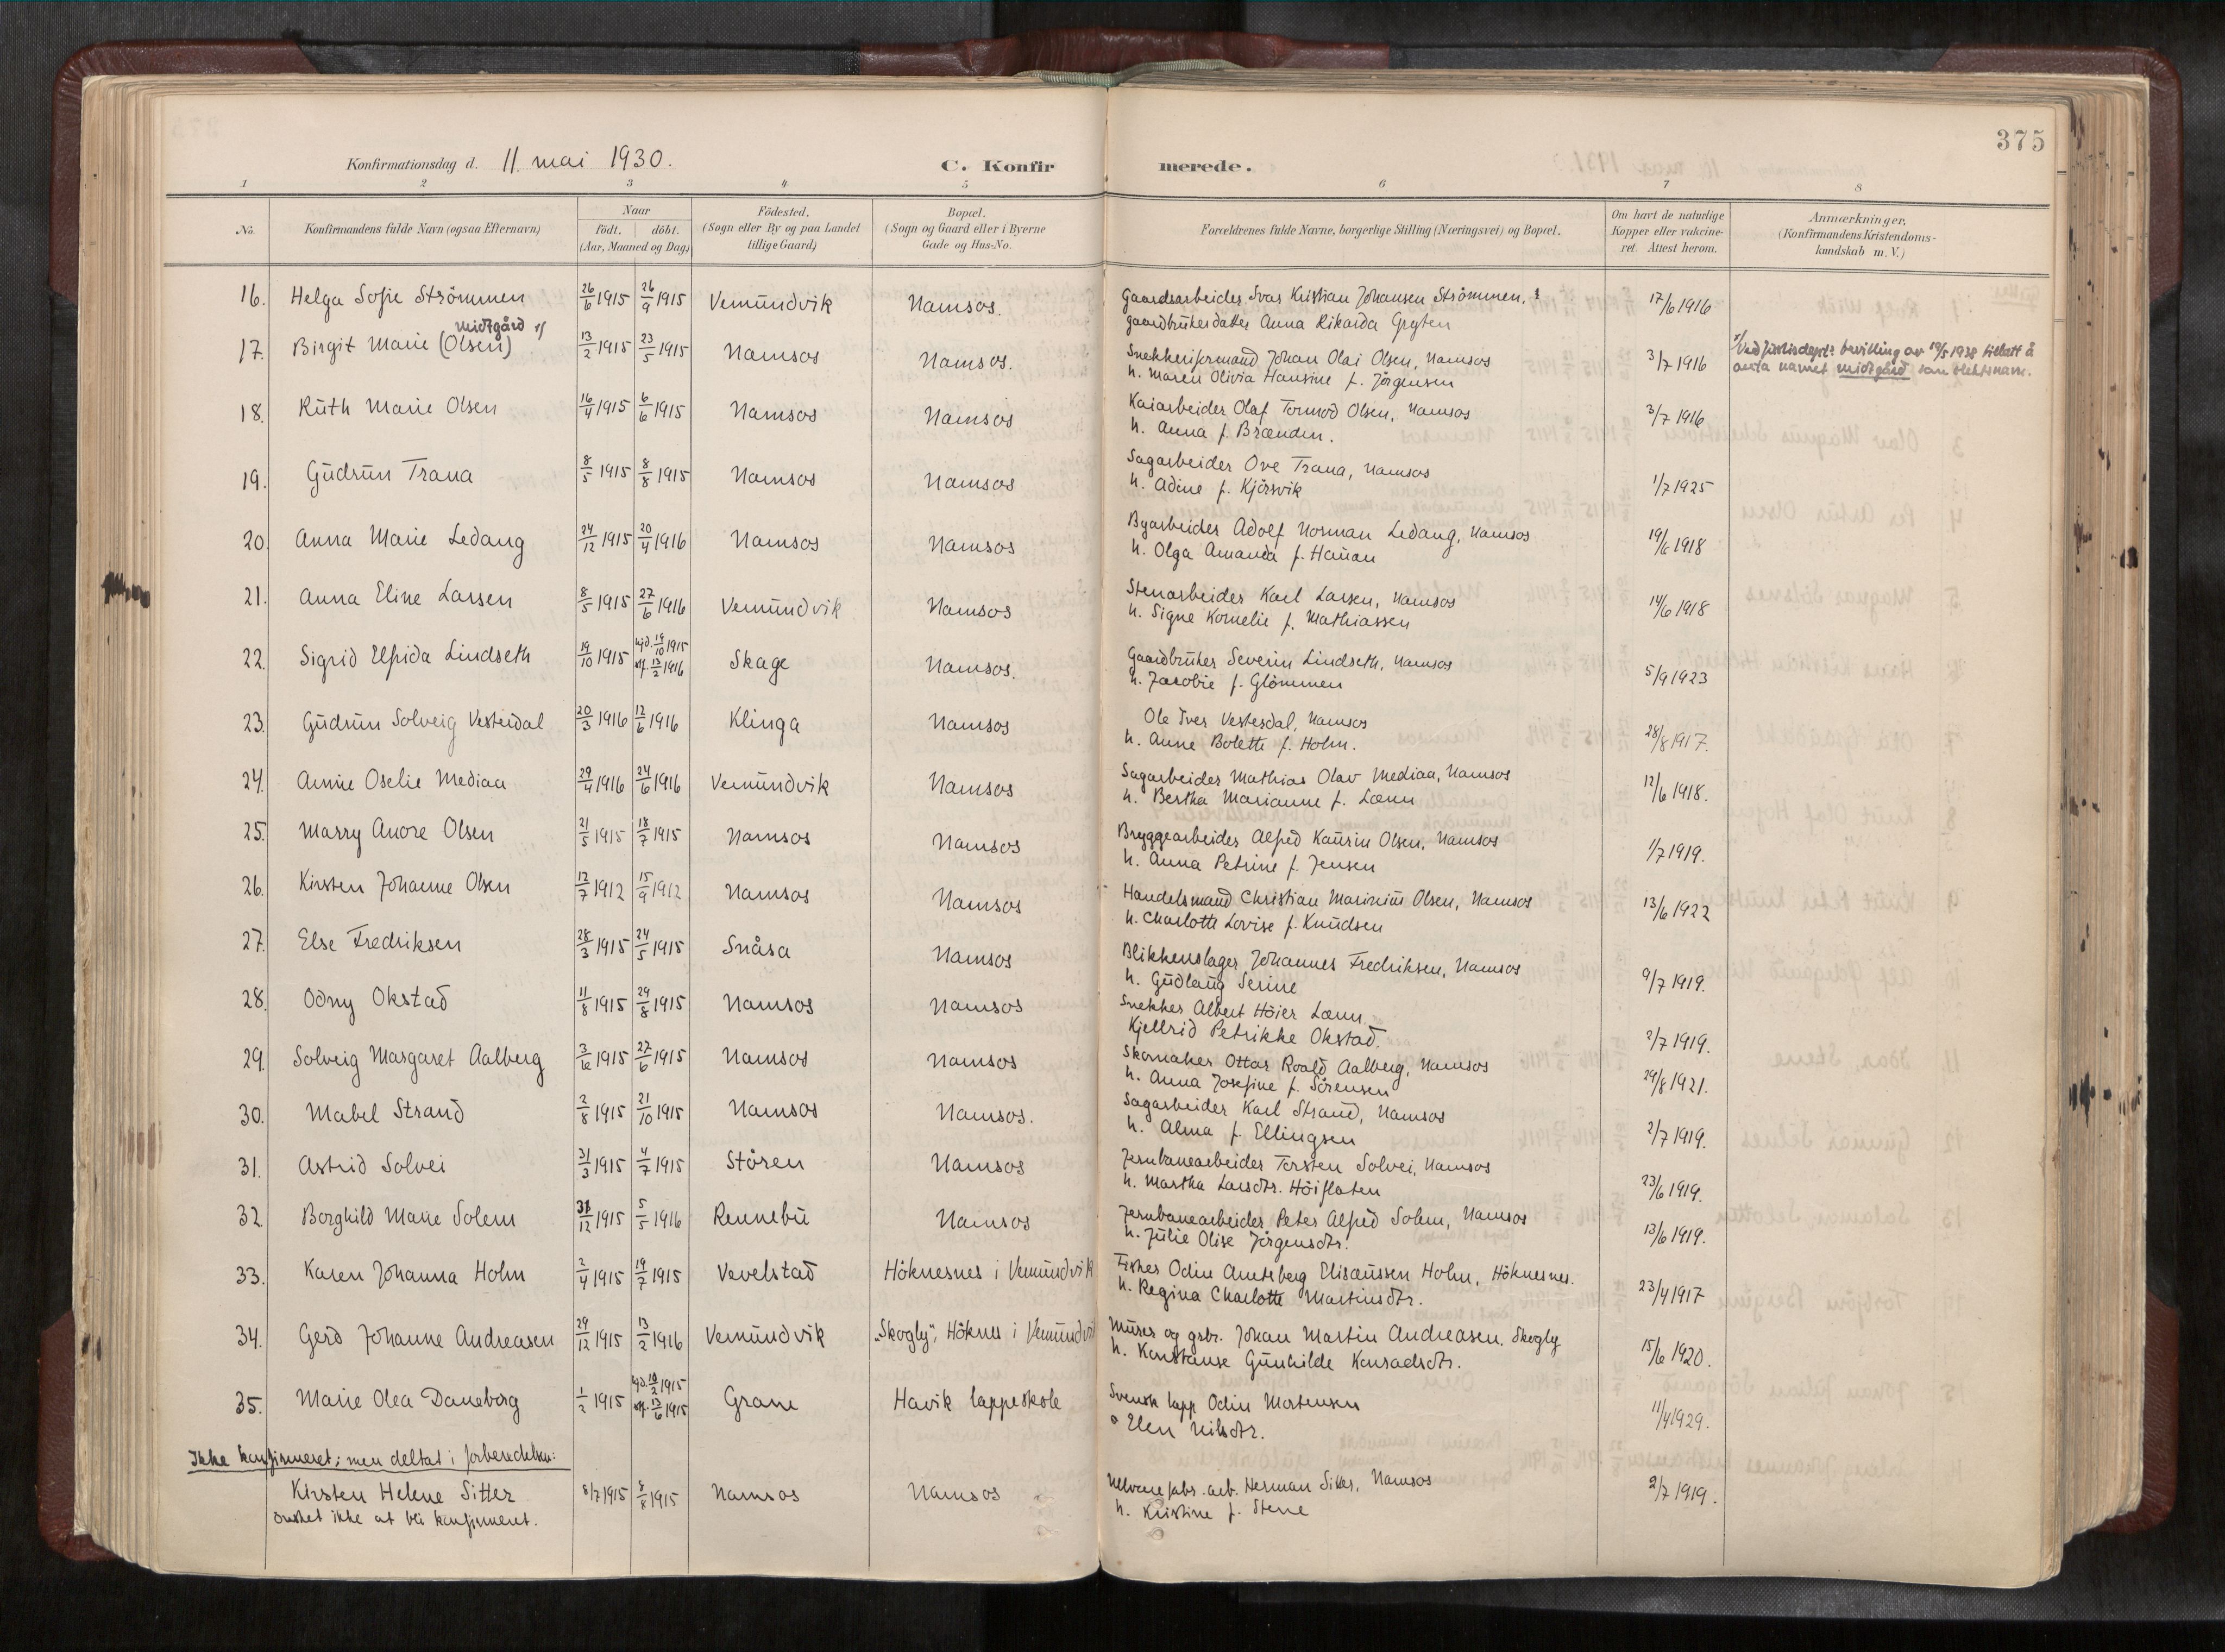 375
Konfirmationsdag d. 11. mai 1930. C. Konfir merede.
1 2 3 4 5 6 7 8
No. Konfirmandens fulde Navn (ogsaa Efternavn) Naar födt. döbt. (Aar, Maaned og Dag) Födested. (Sogn eller By og paa Landet tillige Gaard) Bopæl. (Sogn og Gaard eller i Byerne Gade og Hus-No. Forældrenes fulde Navne, borgerlige Stilling (Næringsvei) og Bopæl. Om havt de naturlige Kopper eller vakcineret. Attest herom. Anmærkninger. (Konfirmandens Kristendomskundskab m. V.)
16. Helga Sofie Strömmen 26/6 1915 26/9 1915 Vemundvik Namsos. Gaardsarbeider Kristian Johansen Strömmen,
gaardbrukerdatter Anna Rikarda Gryten 17/6 1916
midtgård 1/
17. Birgit Marie (Olsen) 13/2 1915 23/5 1915 Namsos Namsos. Snekkeriformand Johan Olai Olsen, Namsos 3/7 1916 bevilling av 1938 tillatt å
h. Maren Olivia Hansine f. Jörgensen anta navnet midtgård som slektsnavn.
18. Ruth Marie Olsen 16/4 1915 6/6 1915 Namsos Namsos Kaiarbeider Olaf Tormod Olsen, Namsos 3/7 1916
h. Anna f. Brænden.
19. Gudrun Trana 8/5 1915 8/8 1915 Namsos Namsos Sagarbeider Ove Trana, Namsos
h. Adine f. Kjörsvik 1/7 1925
20. Anna Marie Ledang 24/12 1915 20/4 1916 Namsos Namsos Byarbeider Adolf Norman Ledang, Namsos
h. Olga Amanda f. Hauan 19/6 1918
21. Anna Eline Larsen 8/5 1915 27/6 1916 Vemundvik Namsos Stenarbeider Karl Larsen, Namsos
h. Signe Kornelie f. Mathiassen 14/6 1918
22. Sigrid Elfrida Lindseth 19/10 1915 hjd. 19/10 1915 stf. 13/2 1916 Skage Namsos. Gaardbruker Severin Lindseth, Namsos
h. Jacobie f. Glömmen 5/9 1923
23. Gudrun Solveig Vesterdal 20/3 1916 12/6 1916 Klinga Namsos Ole Iver Vesterdal, Namsos
h. Anne Bolette f. Holm. 28/8 1917.
24. Annie Oselie Mediaa 29/4 1916 24/6 1916 Vemundvik Namsos Sagarbeider Mathias Olav Mediaa, Namsos
h. Bertha Marianne f. Lænn 12/6 1918.
25. Marry Anore Olsen 21/5 1915 18/7 1915 Namsos Namsos Bryggearbeider Alfred Kaurin Olsen, Namsos
h. Anna Petrine f. Jensen 1/7 1919.
26. Kirsten Johanne Olsen 12/7 1912 15/9 1912 Namsos Namsos Handelsmand Christian Marinius Olsen, Namsos 13/6 1922
h. Charlotte Lovise f. Knudsen
27. Else Fredriksen 28/3 1915 24/5 1915 Snåsa Namsos Blikkenslager Johannes Fredriksen, Namsos
h. Gudlaug Serine 9/7 1919.
28. Odny Okstad 11/8 1915 29/8 1915 Namsos Namsos Snekker Albert Höier Lænn
Kjellrid Petrikke Okstad. 2/7 1919.
29. Solveig Margaret Aalberg 3/6 1915 27/6 1915 Namsos Namsos Skomaker Ottar Roald Aalberg, Namsos
h. Anna Josefine f. Sörensen 29/8 1921.
30. Mabel Strand 2/8 1915 21/10 1915 Namsos Namsos. Sagarbeider Karl Strand, Namsos
h. Alma f. Ellingsen 2/7 1919.
31. Astrid Solvei 31/3 1915 4/7 1915 Stören Namsos Jernbanearbeider Torsten Solvei, Namsos
h. Martha Larsdtr. Höiflaten 23/6 1919.
32. Borghild Marie Solem 31/12 1915 5/5 1916 Rennebu Namsos Jernbanearbeider Peter Alfred Solem, Namsos
h. Julie Olise Jörgensdtr. 13/6 1919.
33. Karen Johanna Holm 2/4 1915 19/7 1915 Vevelstad Höknesnes i Vemundvik Fisker Odin Amtsberg Elisæussen Holm, Höknesnes.
h. Regina Charlotte Martinsdtr. 23/4 1917
34. Gerd Johanne Andreasen 29/12 1915 13/2 1916 Vemundvik "Skogly", Höknes i Vemundvik Murer og grbr. Johan Martin Andreasen. Skogly
h. Konstanse Gunhilde Konradsdtr. 15/6 1920.
35. Marie Olea Daneborg 1/2 1915 hjd. 10/2 1915 stf. 13/6 1915 Grane Havik lappeskole Svensk lapp Odin Mortensen
Elen Nilsdtr. 11/4 1929.
Ikke konfirmeret; men deltat i forberedelsen:
Kirsten Helene Sitter 8/7 1915 8/8 1915 Namsos Namsos Ulvarefabr. arb. Herman Sitter, Namsos 2/7 1919.
önsket ikke at bli konfirmeret. h. Kristine f. Stene